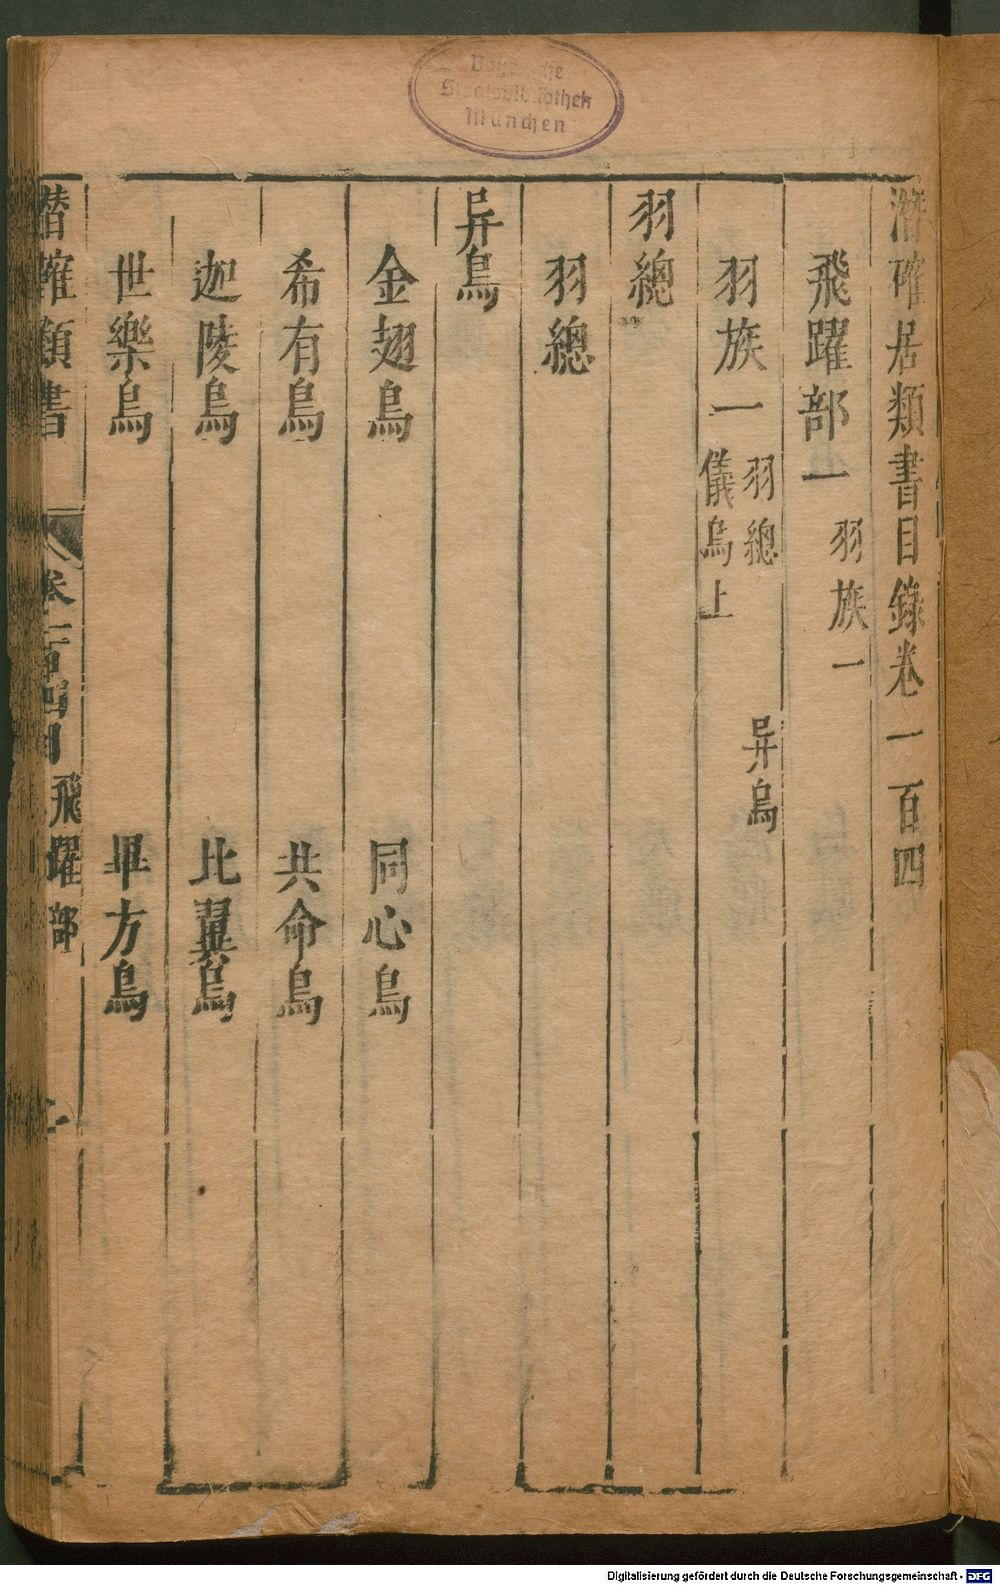 潛確居類書目錄卷一百四
飛躍部一 羽族一
羽族一 羽總 异鳥
儀鳥上
羽總
羽總
异鳥
金翅鳥 同心鳥
希有鳥 共命鳥
迦陵鳥 比翼鳥
世樂鳥 畢方鳥
潛確類書 卷一百四目 飛躍部
Bayerische
Staatsbibliothek
München
Digitalisierung gefördert durch die Deutsche Forschungsgemeinschaft - DFG